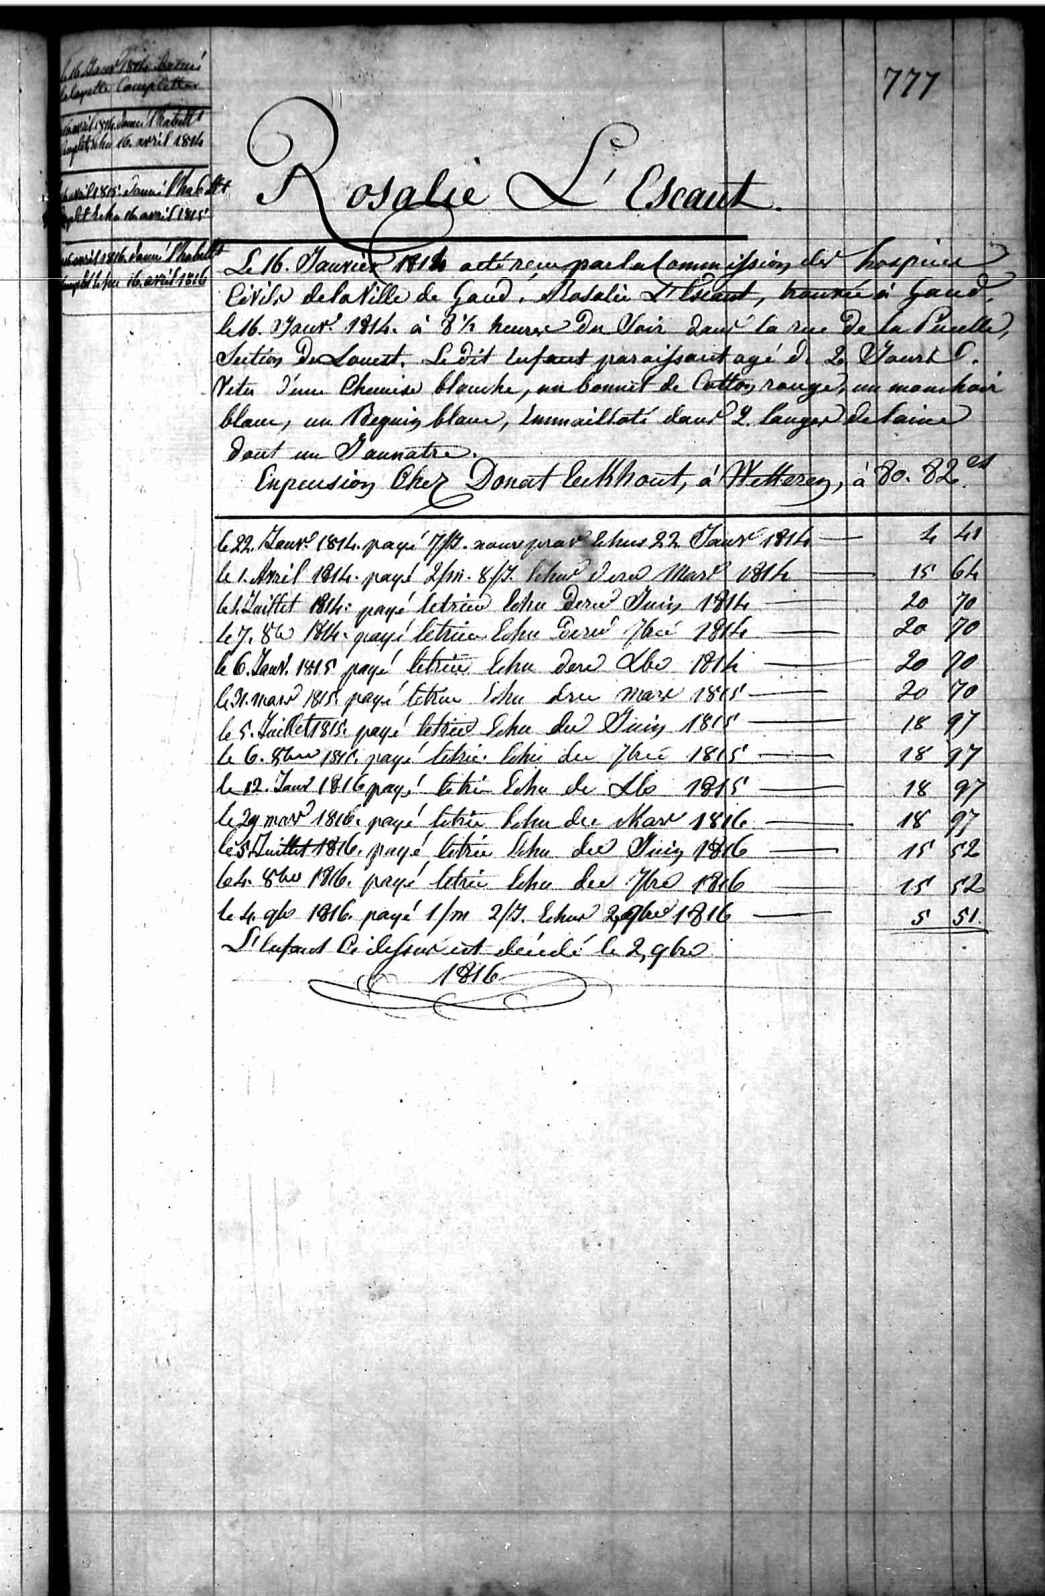 777
le 16 Janvr 1814 donné
la layette Complette
avril 1814 donné l'habillt
Complet échu 16 avril 1814
avril 1815 donné l'habillt
Complet échu 16 avril 1815
avril 1816 donné l'habillt
Complet échu 16. avril 1816
Rosalie L'Escaut.
Le 16. Janvier 1814 a été reçu par la Commission des hospices
Civils de la Ville de Gand, Rosalie L'Escaut, trouvée à Gand,
le 16. Janvr 1814. à 8½ heures du Soir dans la rue de la Pucelle,
Section De Louest. Le dit Enfant paraissant agé de 2 Jours
Vetu d'une Chemise blanche, un bonnet de Cotton rouge, un mouchoir
blanc, un Beguin blanc, Emmailloté dans 2. langes de laine
dont un Jaunatre.
En pension Chez Donat Eeckhout, à Wetteren, à 80. 82 es
le 22. Janvr 1814. payé 7/J. nourre prove Echus 22 Janvr 1814 — 4 41
le 1. Avril 1814. payé 2/m. 8/J. Echus derer Mars 1814 — 15 64
le 4. Juillet 1814. payé letrien Echu derer Juin 1814 — 20 70
le 7. 8be 1814. payé letrien Echu derer 7bre 1814 — 20 70
le 6. Janvr. 1815 payé letrien Echu derer Xbre 1814 — 20 70
le 31. mars 1815. payé letrien Echu drer mars 1815 — 20 70
le 5. Juillet 1815. payé letrien Echu der Juin 1815 — 18 97
le 6. 8bre 1815. payé letrie. Echu der 7bre 1815 — 18 97
le 12. Janvr 1816 payé letrie Echu de Xbre 1815 — 18 97
le 29 mars 1816. payé letrie Echu der Mars 1816 — 18 97
le 5 Juillet 1816. payé letrie Echu der Juin 1816 — 15 52
le 4. 8bre 1816. payé letrie Echu der 7bre 1816 — 15 52
le 4. 9bre 1816. payé 1/m 2/J. Echus 2, 9bre 1816 — 5 51
L'Enfant Ci dessus est décédé le 2, 9bre
1816